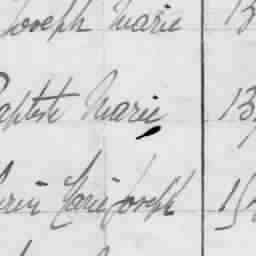 Joseph Marie 13
Baptiste Marie 13
Marie Joseph 15